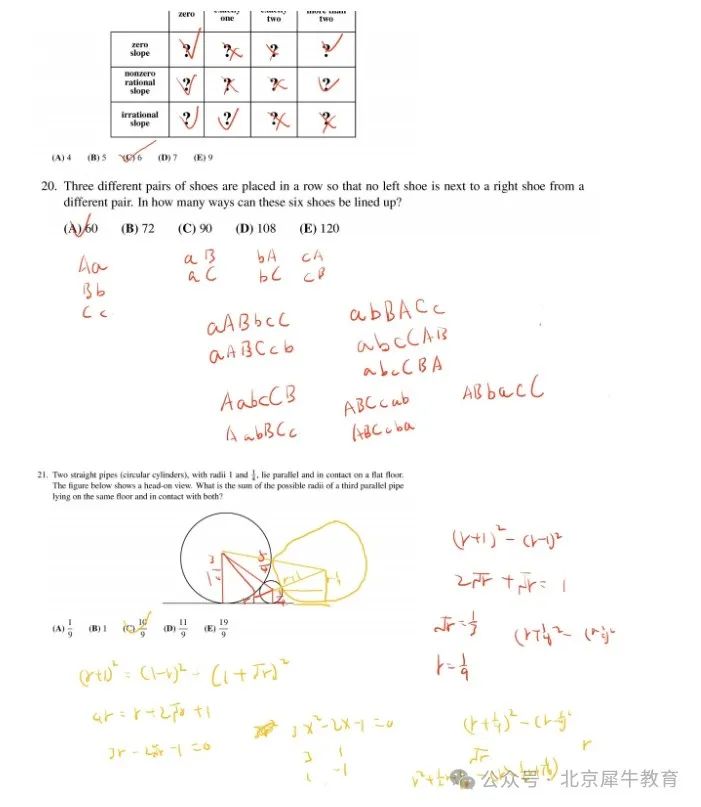 zero one two two
zero slope ? ? ? ?
nonzero rational slope ? ? ? ?
irrational slope ? ? ? ?
(A) 4 (B) 5 (C) 6 (D) 7 (E) 9
20. Three different pairs of shoes are placed in a row so that no left shoe is next to a right shoe from a
different pair. In how many ways can these six shoes be lined up?
(A) 60 (B) 72 (C) 90 (D) 108 (E) 120
Aa aB bA cA
Bb aC bC cB
Cc
aABbcC abBACc
aABCcb abcCAB
abcCBA
AabcCB ABCcab ABbacC
AabBCc ABCcba
21. Two straight pipes (circular cylinders), with radii 1 and 1/4, lie parallel and in contact on a flat floor.
The figure below shows a head-on view. What is the sum of the possible radii of a third parallel pipe
lying on the same floor and in contact with both?
(r+1)² - (r-1)²
2√r + √r = 1
√r = 1/3
r = 1/9
(A) 1/9 (B) 1 (C) 10/9 (D) 11/9 (E) 19/9
(r+1)² = (1-r)² + (1+√r)²
4r = r + 2√r + 1
3r - 2√r - 1 = 0
3x² - 2x - 1 = 0
3 1
1 -1
√r
公众号 · 北京犀牛教育